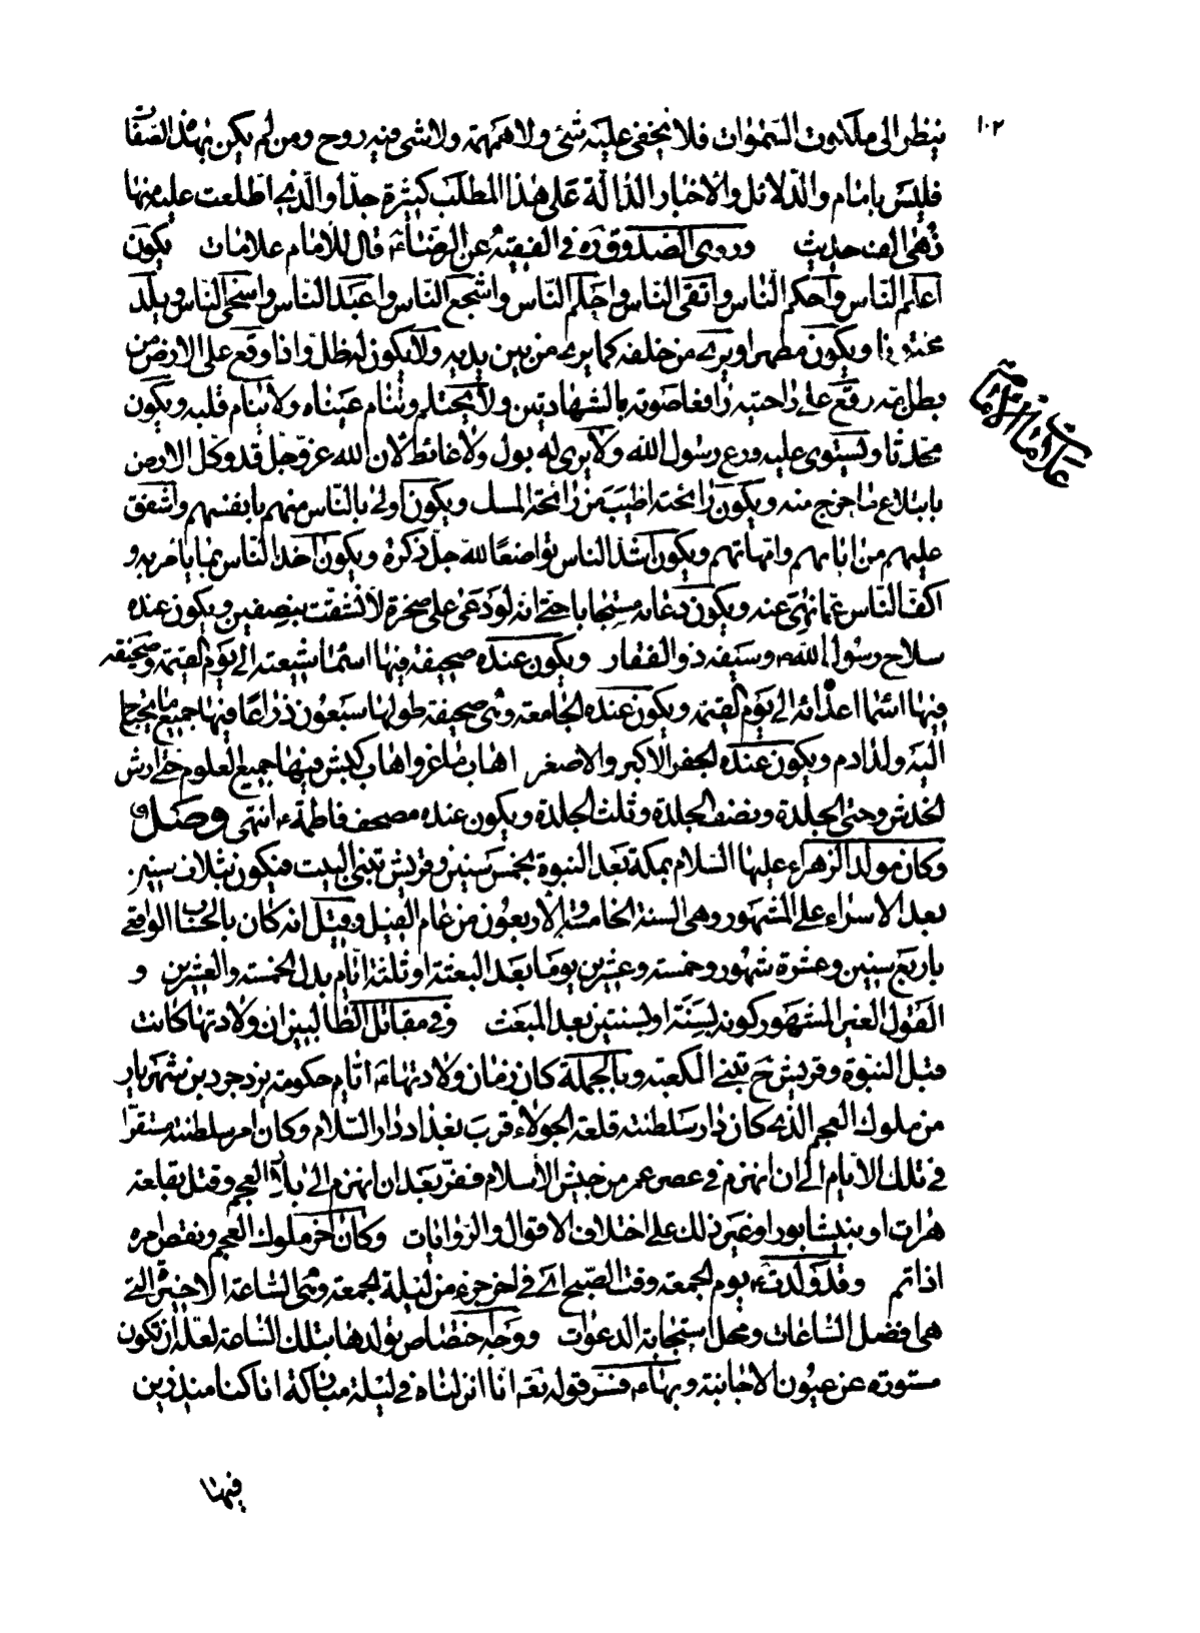 ١٠٢
ينظر الى ملكوت السّموات فلا يخفى عليه شئ ولا همهمة ولا شئ فيه روح ومن لم يكن بهذه الصّفات
فليس بامام والدّلائل والاخبار الدّالة على هذا المطلب كثيرة جدّا والّذي اطّلعت عليه منها
زهى الف حديث وروى الصّدوق ره في الفقيه عن الرّضاء قال للامام علامات يكون
اعلم النّاس واحكم النّاس واتقى النّاس واحلم النّاس واشجع النّاس واعبد النّاس واسخى النّاس ويلد
مختونا ويكون مطهرا ويرى من خلفه كما يرى من بين يديه ولا يكون له ظلّ واذا وقع على الارض من
بطن امّه وقع على راحتيه رافعا صوته بالشهادتين ولا يحتلم وتنام عيناه ولا ينام قلبه ويكون
علامات الامام
محدثا ويستوى عليه درع رسول الله ولا يرى له بول ولا غائط لان الله عزوجل قد وكل الارض
بابتلاع ما خرج منه ويكون رائحته اطيب من رائحة المسك ويكون اولى بالنّاس منهم بانفسهم واشفق
عليهم من ابائهم وامهاتهم ويكون اشدّ الناس تواضعا لله جلّ ذكره ويكون اخذ النّاس بما يامر به و
اكفّ النّاس عمّا نهى عنه ويكون دعائه مستجابا حتى انه لو دعى على صخرة لانشقت بنصفين ويكون عنده
سلاح رسول الله وسيفه ذو الفقار ويكون عنده صحيفة فيها اسماء شيعته الى يوم القيمة وصحيفه
فيها اسماء اعدائه الى يوم القيمة ويكون عنده الجامعة وهى صحيفة طولها سبعون ذراعا فيها جميع ما يحتاج
اليه ولد ادم ويكون عنده الجفر الاكبر والاصغر اهاب ماعز واهاب كبش فيها جميع العلوم حتى ارش
الخدش وحتى الجلدة ونصف الجلدة وثلث الجلدة ويكون عنده مصحف فاطمة ع انتهى وصل
وكان مولد الزهراء عليها السّلام بمكة بعد النبوة بخمس سنين وقريش تبنى البيت فيكون بثلاث سنين
بعد الاسراء على المشهور وهى السنة الخامسة والاربعون من عام الفيل وقيل انه كان بالحساب الواقعى
باربع سنين وعشرة شهور وخمسة وعشرين يوما بعد البعثة او ثلثة ايّام بدل الخمسة والعشرين و
القول الغير المشهور كونه بسنة او بسنتين بعد المبعث وفي مقاتل الطّالبيين ان ولادتها كانت
قبل النبوة وقريش ح تبنى الكعبة وبالجملة كان زمان ولادتها ع ايّام حكومة يزدجرد بن شهريار
من ملوك العجم الّذي كان دار سلطنته قلعة الجولاء قرب بغداد دار السّلام وكان امر سلطنته مستقرّا
في تلك الايّام الى ان انهزم في عصر عمر من جيش الأسلام ففرّ بعد ان انهزم الى بلاد العجم وقتل بقلعة
هرات او بنيشابور او غير ذلك على اختلاف الاقوال والرّوايات وكان اخر ملوك العجم ونقص امره
اذا تم وقد ولدت ع يوم الجمعة وقت الصّبح اي في اخر جزء من ليلة الجمعة وهى السّاعة الاخيرة التي
هى افضل السّاعات ومحل استجابة الدعوات ووجه اختصاص تولدها بتلك السّاعة لعلّه ان تكون
مستورة عن عيون الاجانبة وبهاء فسّر قوله تعه انا انزلناه في ليلة مباركة انا كنا منذرين
فيها